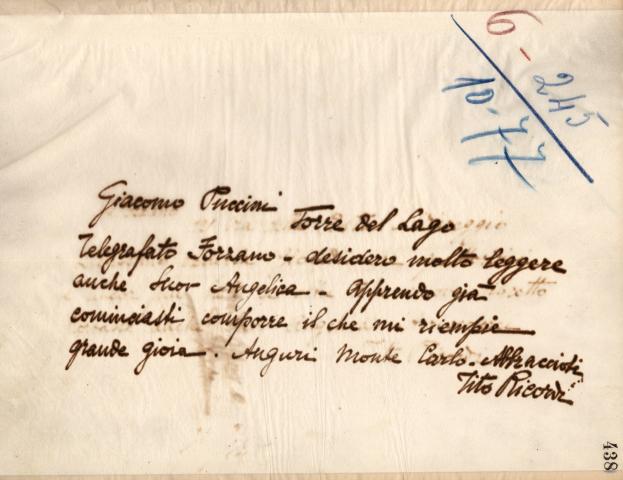 6-
245
10-77
Giacomo Puccini
Torre del Lago
Telegrafato Forzano - desidero molto leggere
anche Suor Angelica - Apprendo già
cominciasti comporre il che mi riempie
grande gioia. Auguri Monte Carlo. Abbraccioti
Tito Ricordi
438